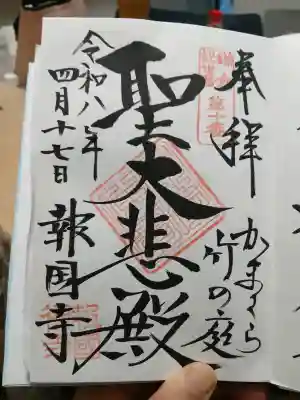 奉拝
かまくら
竹の庭
聖大悲殿
令和八年
四月十七日
報国寺